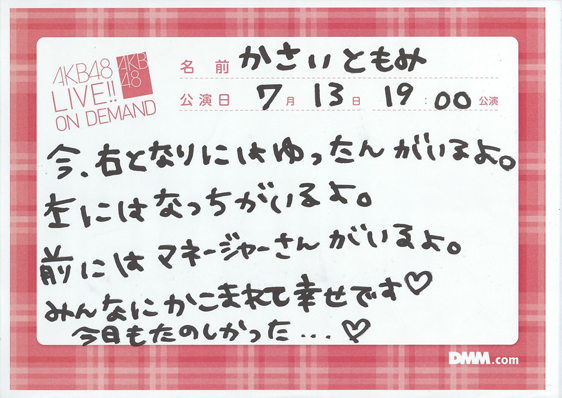 AKB48
LIVE!!
ON DEMAND
AKB
48
名前 かさいともみ
公演日 7月13日 19:00公演
今、右となりにはゆったんがいるよ。
左にはなっちがいるよ。
前にはマネージャーさんがいるよ。
みんなにかこまれて幸せです♡
今日もたのしかった...♡
DMM.com